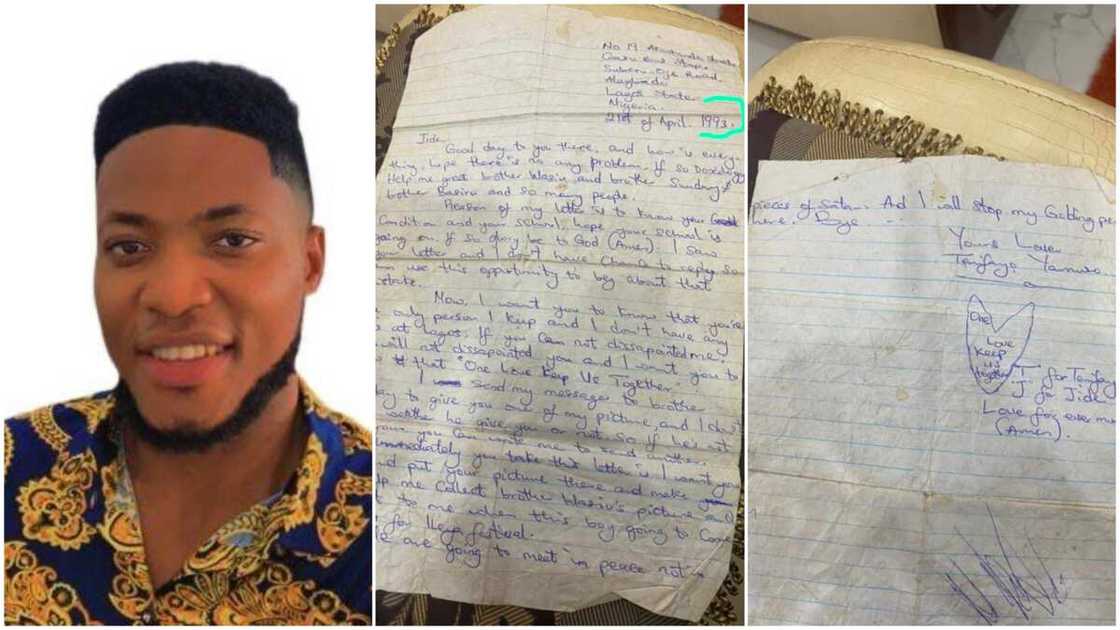 No 19
Lagos State
Nigeria.
21st of April. 1993.
Jide,
Good day to you there, and how is every-
thing, hope there is no any problem. If so
Help me great brother Wasiu and brother Sunday,
brother Basiru and so many people.
Reason of my letter is to know you Good
Condition and your school, hope your school is
going on. If so glory be to God (Amen). I saw
your letter and I don't have Chance to reply so
use this opportunity to beg about that
Now, I want you to know that you're
only person I keep and I don't have any
at Lagos. If you Can not dissapointed me.
will not dissapointed you and I want you to
that "One Love Keep Us Together."
I send my messages to brother
to give you one of my picture, and I don't
he give you or not. so if he's not
you Can write me to send another.
Immediately you take this letter is I want you
put your picture there and make
me Collect brother Wasiu's picture and
to me when this boy going to Come
for Ileya festival.
are going to meet in peace not in
pieces of Satan. And I will stop my Getting pe
here. Bye
Yours Love
One
Love
Keep
us
together
"T" for
"J" for Jide
Love for ever more
(Amen).